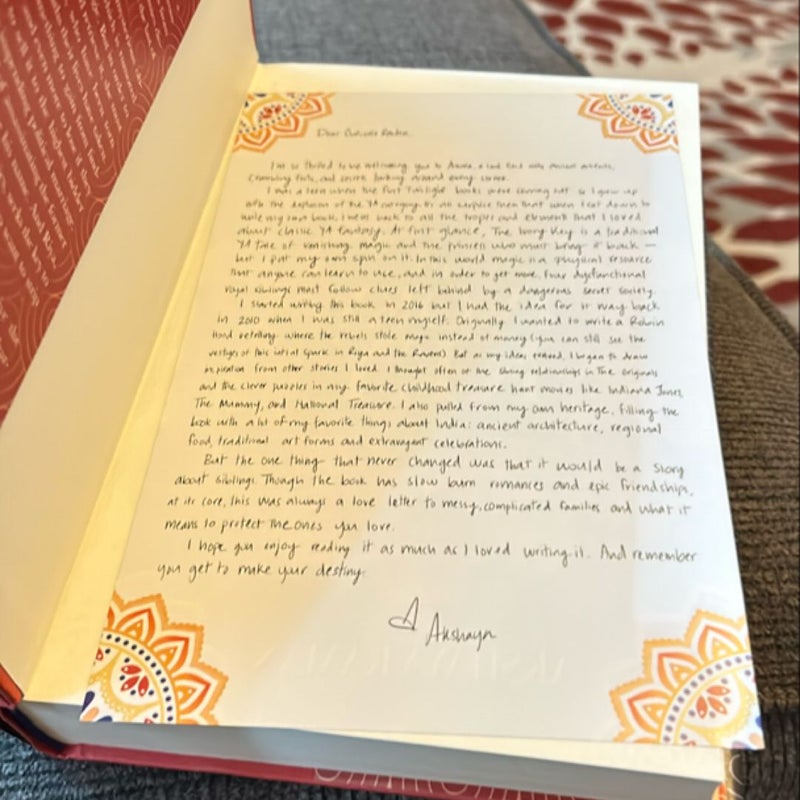 Dear Owlcrate Reader,
I'm so thrilled to be welcoming you to Ashoka, a land filled with ancient
crumbling forts, and secrets lurking around every corner.
I was a teen when the first Twilight books were coming out so I grew up
with the explosion of the YA category. It's no surprise then that when I sat down to
write my own book, I went back to all the tropes and elements that I loved
about classic YA fantasy. At first glance, The Ivory Key is a traditional
YA tale of vanishing magic and the princess who must bring it back —
but I put my own spin on it. In this world magic is a physical resource
that anyone can learn to use, and in order to get more, four dysfunctional
royal siblings must follow clues left behind by a dangerous secret society.
I started writing this book in 2016 but I had the idea for it way back
in 2010 when I was still a teen myself. Originally I wanted to write a Robin
Hood retelling where the rebels stole magic instead of money (you can still see the
vestiges of this initial spark in Riya and the Ravens). But as my ideas evolved, I began to draw
inspiration from other stories I loved. I thought often of the sibling relationships in The Originals
and the clever puzzles in my favorite childhood treasure hunt movies like Indiana Jones,
The Mummy, and National Treasure. I also pulled from my own heritage, filling the
book with a lot of my favorite things about India: ancient architecture, regional
food, traditional art forms and extravagant celebrations.
But the one thing that never changed was that it would be a story
about siblings. Though the book has slow burn romances and epic friendships,
at its core, this was always a love letter to messy, complicated families and what it
means to protect the ones you love.
I hope you enjoy reading it as much as I loved writing it. And remember
you get to make your destiny.
Akshaya